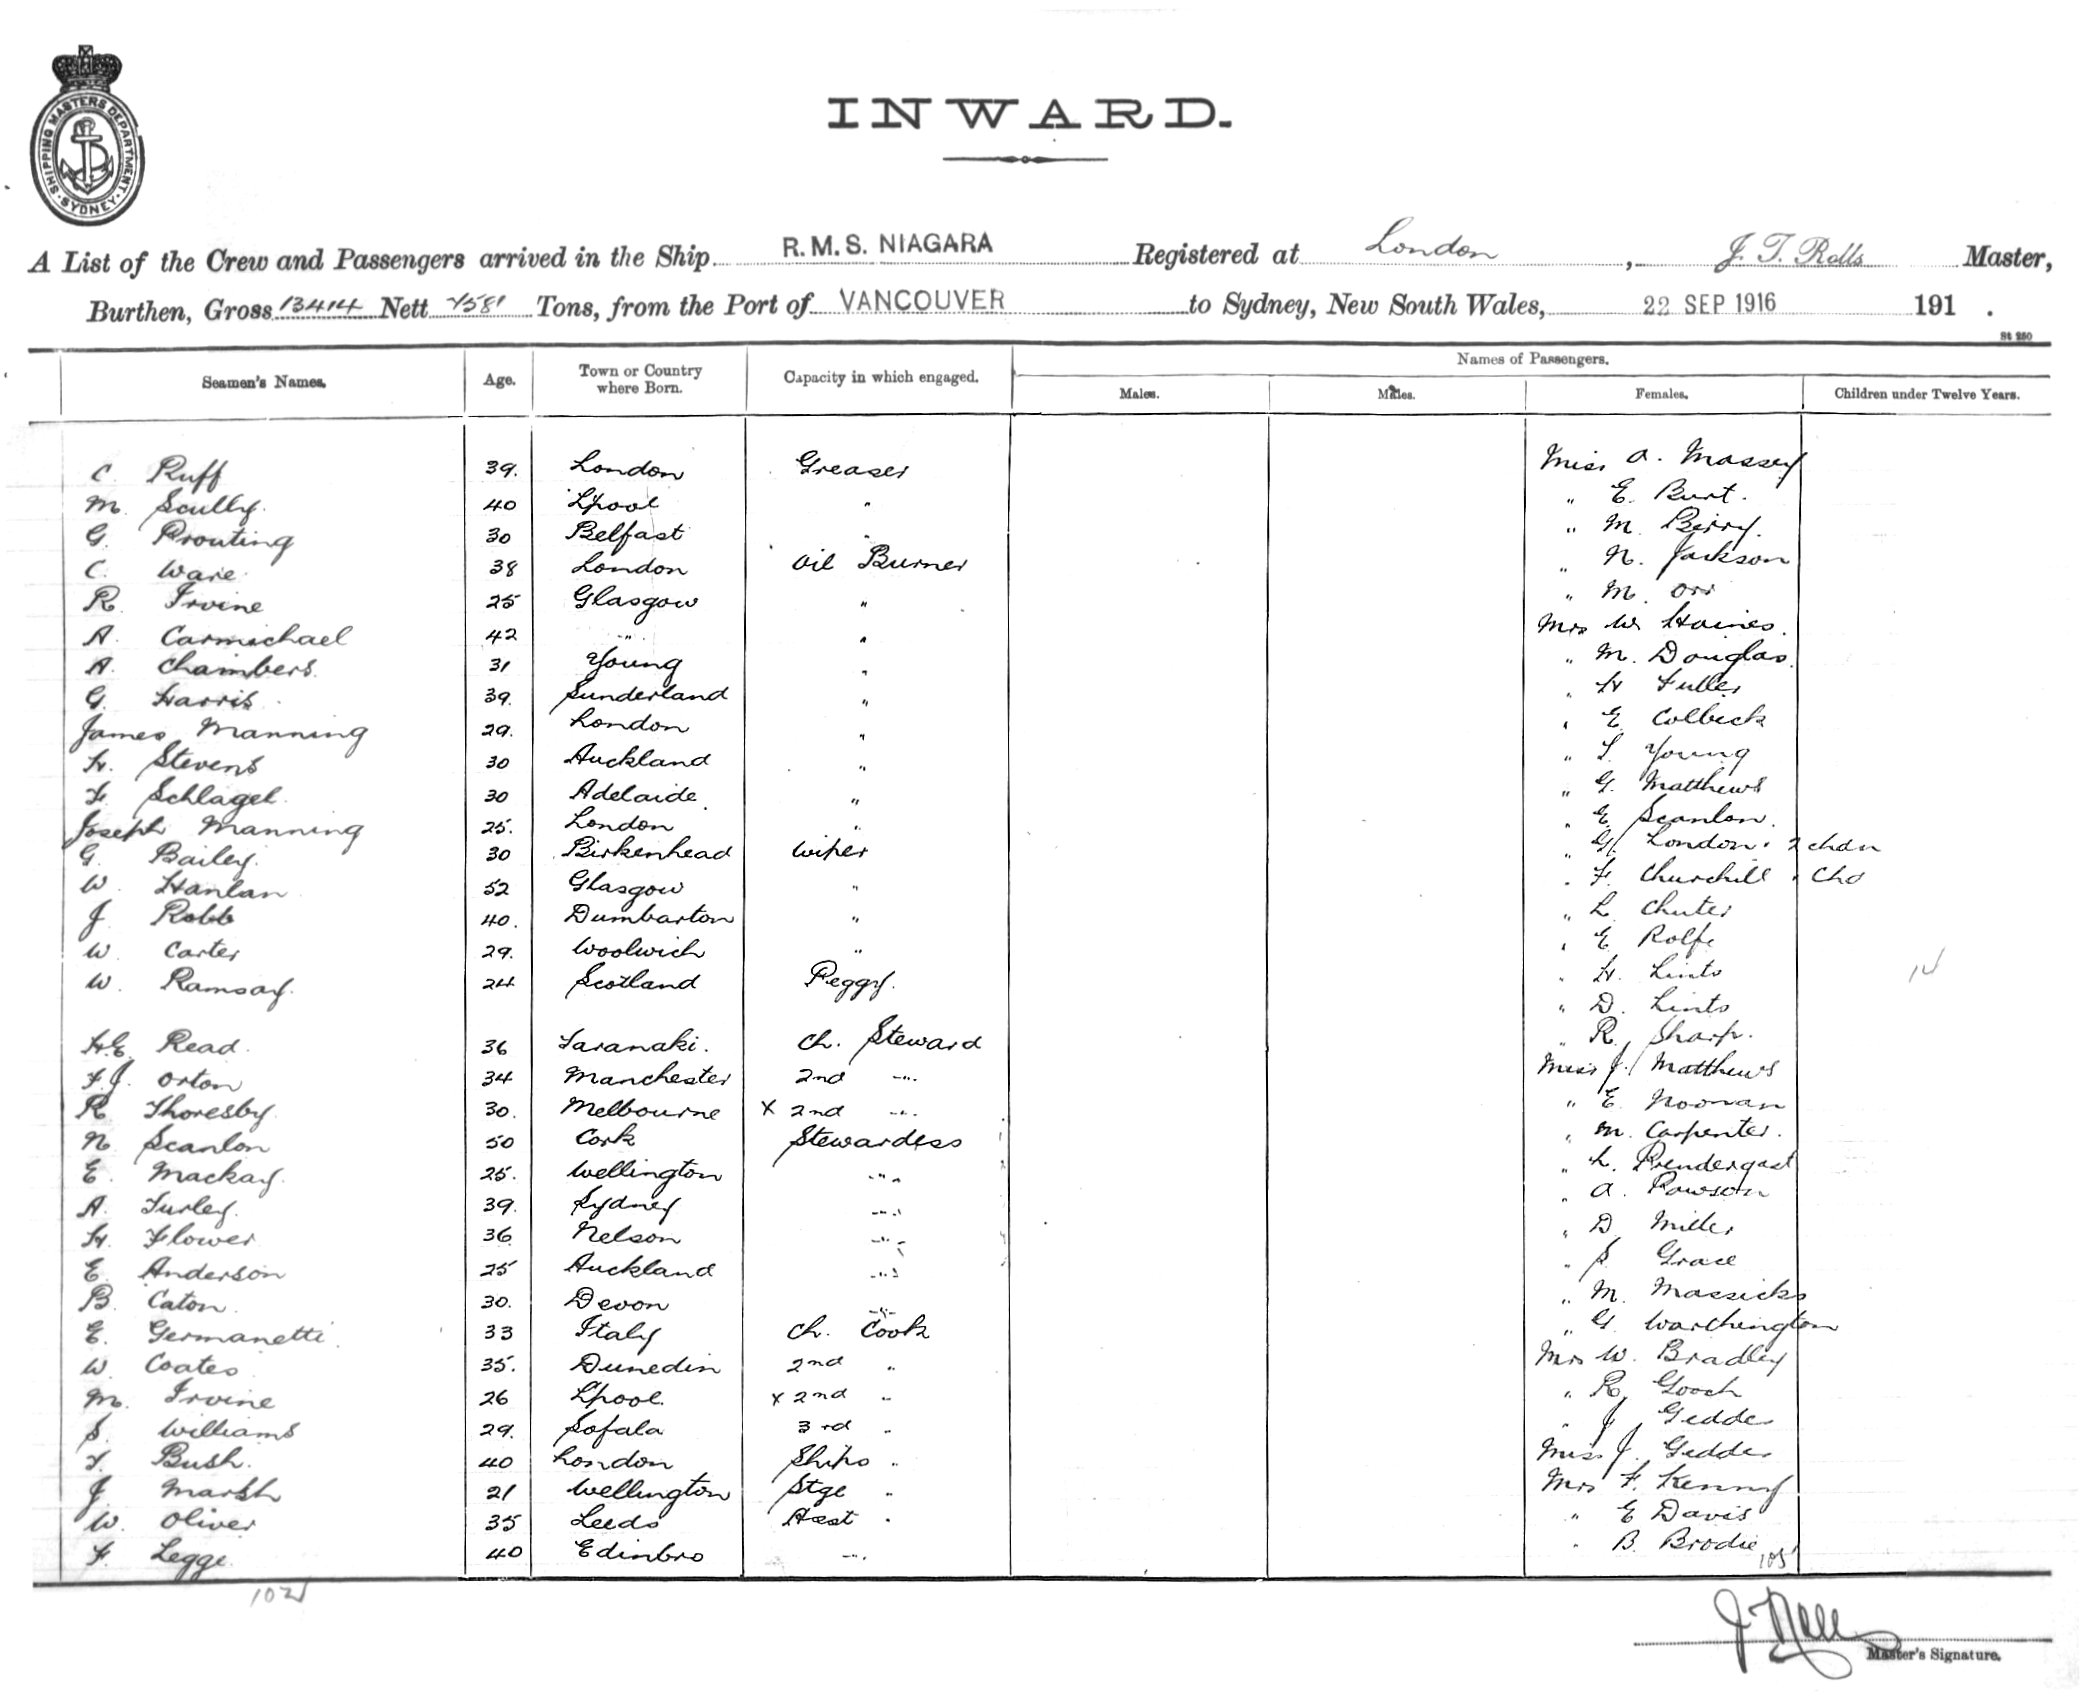 SHIPPING MASTERS DEPARTMENT
SYDNEY
INWARD.
A List of the Crew and Passengers arrived in the Ship R.M.S. NIAGARA Registered at London, J. T. Rolls Master,
Burthen, Gross 13414 Nett 7581 Tons, from the Port of VANCOUVER to Sydney, New South Wales, 22 SEP 1916 191 .
St 250
Names of Passengers.
Seamen's Names. Age. Town or Country where Born. Capacity in which engaged. Males. Males. Females. Children under Twelve Years.
C. Ruff 39. London Greaser Miss A. Massey
M. Scully. 40 L'pool " " E. Burt.
G. Prouting 30 Belfast " " M. Berry.
C. Ware 38 London Oil Burner " N. Jackson
R. Irvine 25 Glasgow " " M. Orr
A. Carmichael 42 " " Mrs W. Haines.
A. Chambers. 31 Young " " M. Douglas.
G. Harris. 39. Sunderland " " H Fuller
James Manning 29. London " " E Colbeck
H. Stevens 30 Auckland " " Young
F. Schlagel. 30 Adelaide. " " G. Matthews
Joseph Manning 25. London " " E. Scanlon.
G. Bailey. 30 Birkenhead Wiper " G. London. 2 chdn
W. Hanlan 52 Glasgow " " F. Churchill . Chd
J Robb 40. Dumbarton " " L Chuter
W. Carter 29. Woolwich " " E Rolfe
W. Ramsay. 24 Scotland Peggy. " H. Lints
" D. Lints
H.E. Read. 36 Taranaki. Ch. Steward " R. Sharp.
F.J. Orton 34 Manchester 2nd " Miss J. Matthews
R. Thoresby. 30. Melbourne X 2nd " " E. Noonan
N Scanlon 50 Cork Stewardess " M. Carpenter.
E. Mackay. 25. Wellington " " L. Prendergast
A. Turley. 39. Sydney " " A. Rawson
H. Flower 36 Nelson " " D Miller
E Anderson 25 Auckland " " S. Grace
B. Caton. 30. Devon " " M. Massicks
E. Germanetti. 33 Italy Ch. Cook " G. Worthington
W. Coates 35. Dunedin 2nd " Mrs W. Bradley
M. Irvine 26 L'pool. X 2nd " " R. Gooch
S. Williams 29. Sofala 3rd " " J. Geddes
T. Bush. 40 London Ships " Miss J. Geddes
J. Marsh 21 Wellington Stge " Mrs F. Kenny
W. Oliver 35 Leeds Asst " " E Davis
F. Legge. 40 Edinbro " " B. Brodie
102
105
Master's Signature.